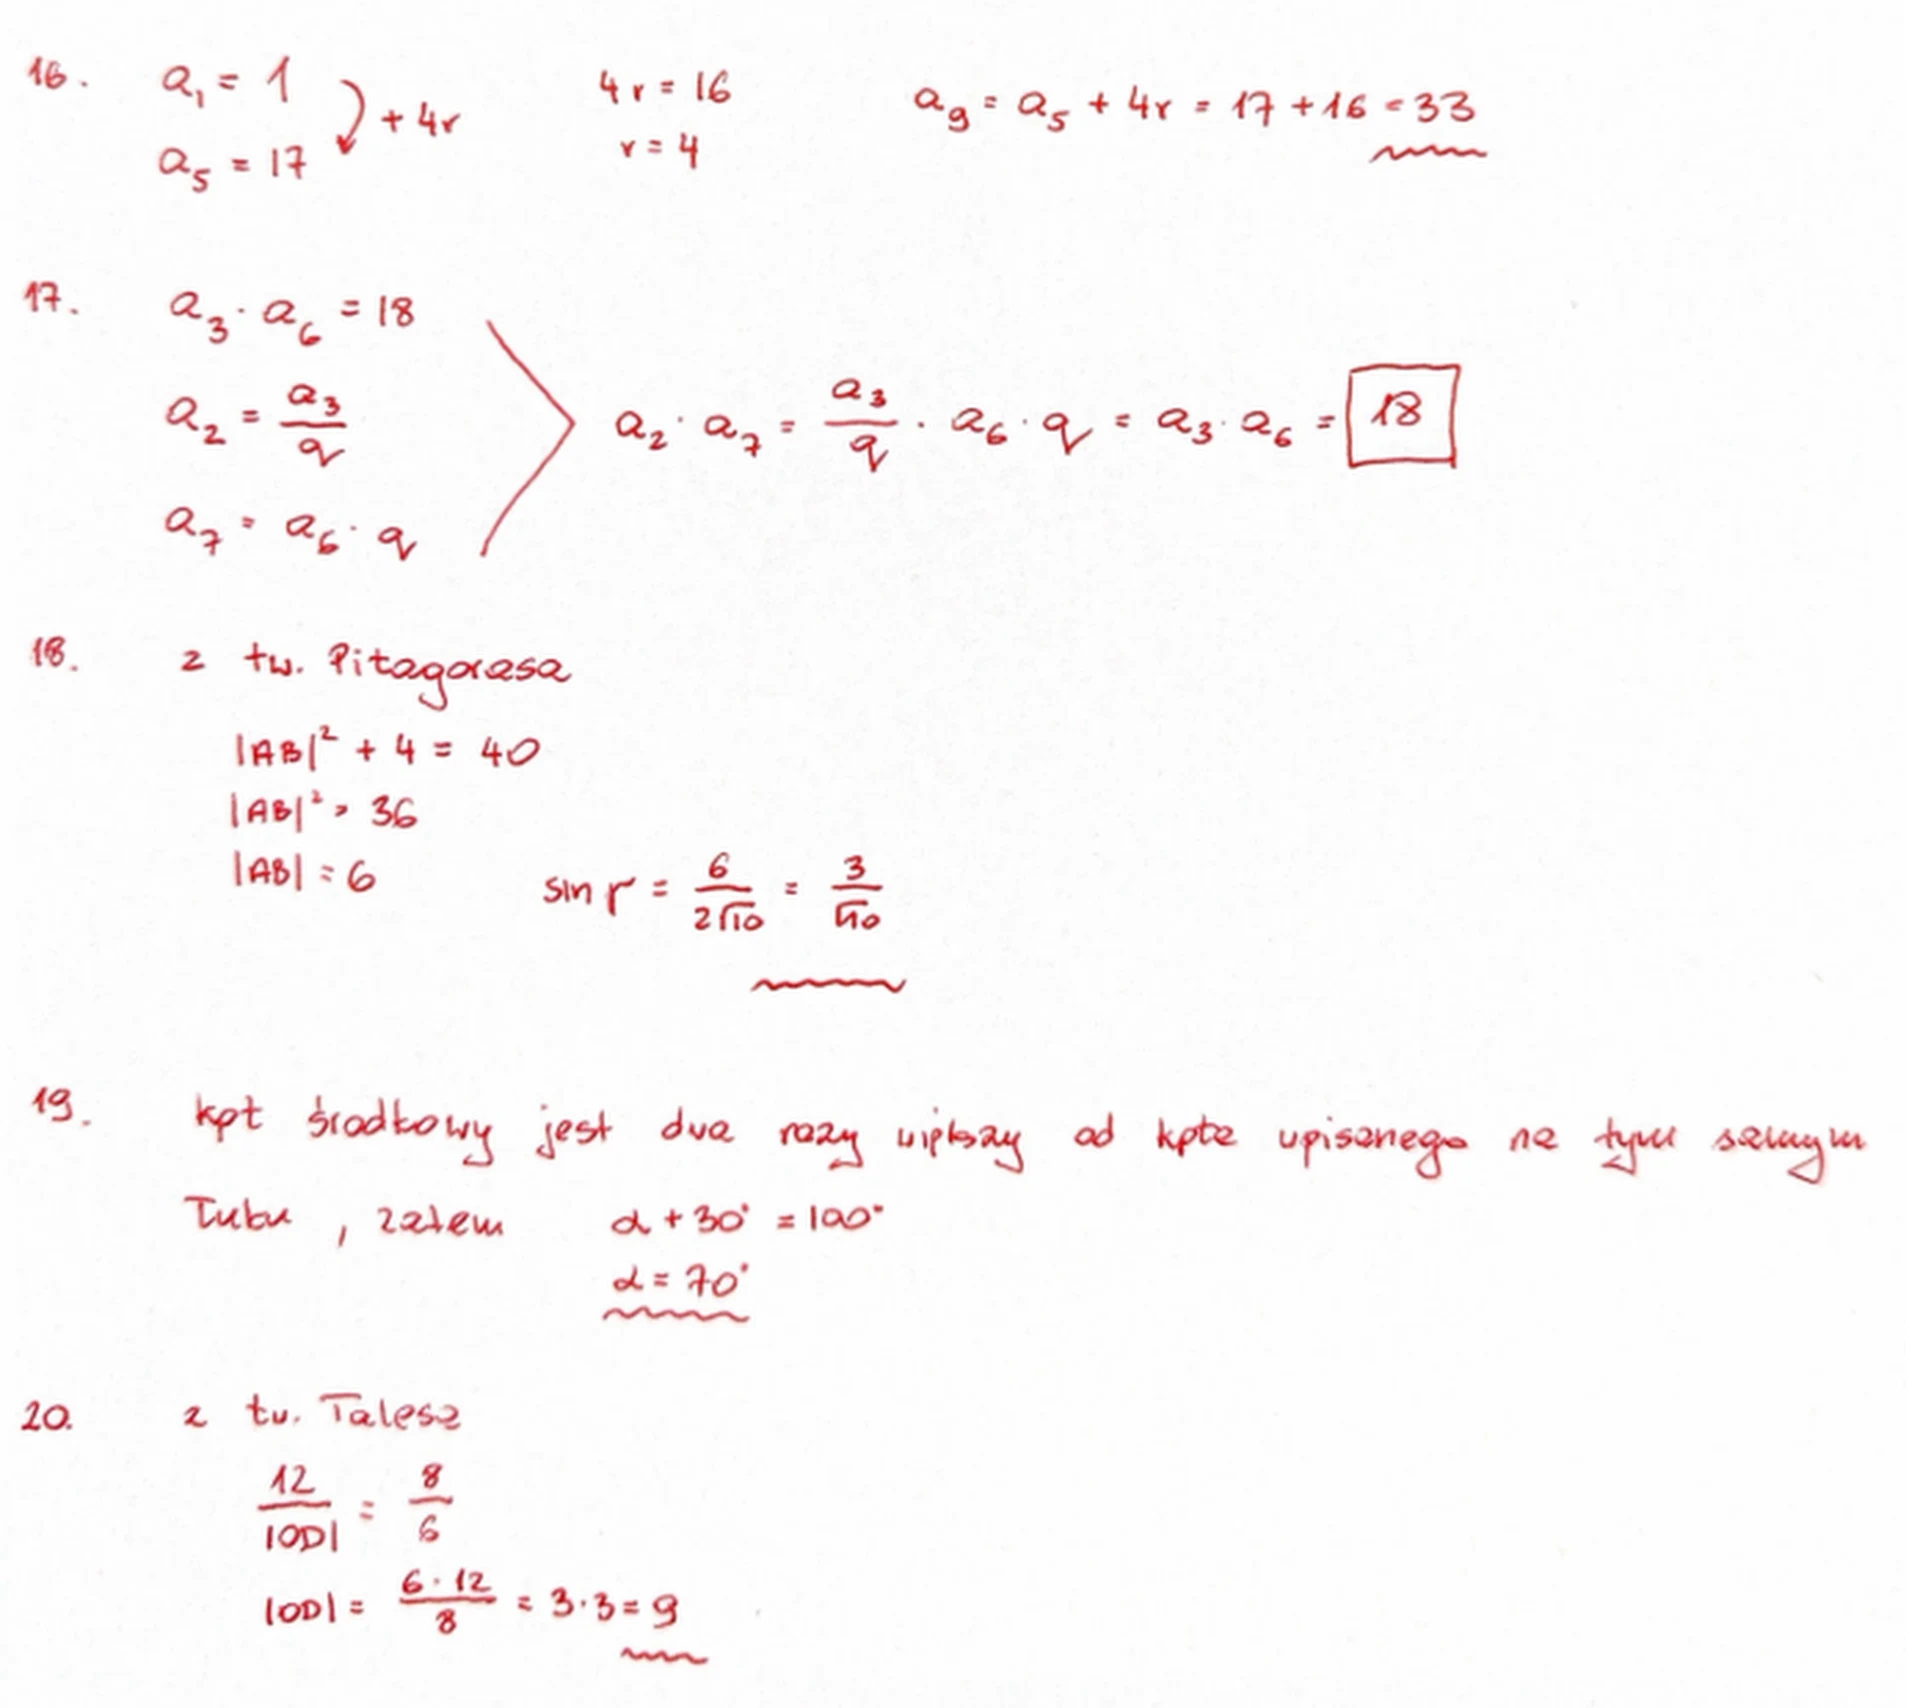 16. a₁ = 1 + 4r 4r = 16 a₉ = a₅ + 4r = 17 + 16 = 33
a₅ = 17 r = 4
17. a₃ · a₆ = 18
a₂ = a₃/q a₂ · a₇ = a₃/q · a₆ · q = a₃ · a₆ = 18
a₇ = a₆ · q
18. z tw. Pitagorasa
|AB|² + 4 = 40
|AB|² = 36
|AB| = 6 sin γ = 6/2√10 = 3/√10
19. kąt środkowy jest dwa razy większy od kąta wpisanego na tym samym
łuku, zatem α + 30° = 100°
α = 70°
20. z tw. Talesa
12/|OD| = 8/6
|OD| = 6·12/8 = 3·3 = 9